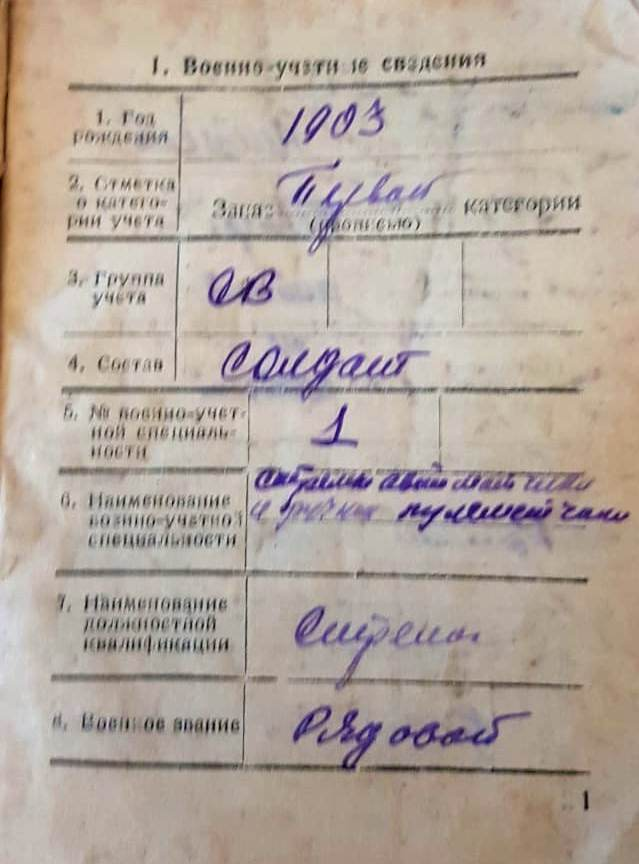 I. Военно-учетные сведения
1. Год рождения
1903
2. Отметка о категории учета
Запас Первой категории
(прописью)
3. Группа учета
СВ
4. Состав
Солдат
5. № военно-учетной специальности
1
6. Наименование военно-учетной специальности
автоматчики
и ручные пулеметчики
7. Наименование должностной квалификации
Стрелок
8. Военное звание
Рядовой
1